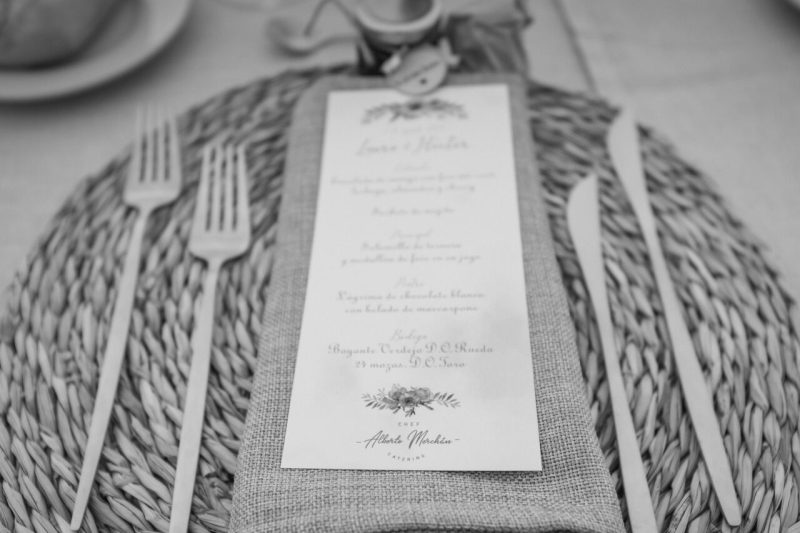 Laura & Héctor
Entrante
Sorbete de mojito
Principal
Solomillo de ternera
y medallón de foie en su jugo
Postre
Lágrima de chocolate blanco
con helado de marcarpone
Bodega
Bayante Verdejo D.O. Rueda
24 mozas. D.O. Toro
CHEF
- Alberto Merchán -
CATERING